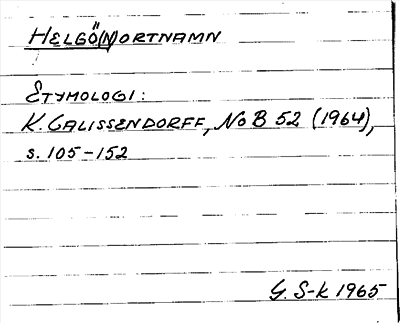 HELGÖ(N)ORTNAMN
ETYMOLOGI:
K. CALISSENDORFF, NoB 52 (1964),
s. 105-152
G. S-k 1965